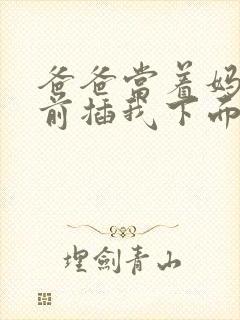 爸爸當着妈
前插我下
埋劍青山